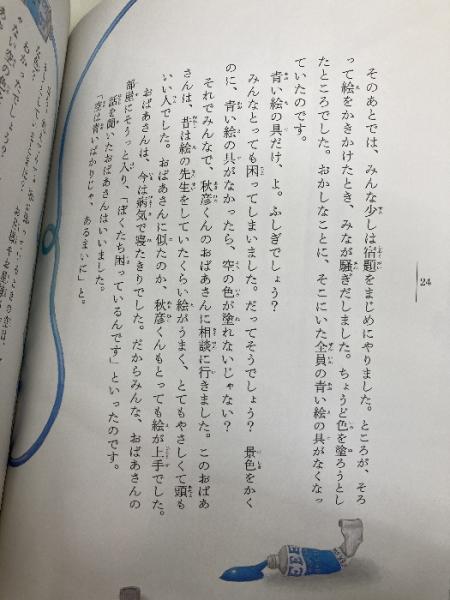 24
そのあとでは、みんな少しは宿題をまじめにやりました。ところが、そろ
って絵をかきかけたとき、みなが騒ぎだしました。ちょうど色を塗ろうとし
たところでした。おかしなことに、そこにいた全員の青い絵の具がなくなっ
ていたのです。
青い絵の具だけ、よ。ふしぎでしょう？
みんなとっても困ってしまいました。だってそうでしょう？　景色をかく
のに、青い絵の具がなかったら、空の色が塗れないじゃない？
それでみんなで、秋彦くんのおばあさんに相談に行きました。このおばあ
さんは、昔は絵の先生をしていたくらい絵がうまく、とてもやさしくて頭も
いい人でした。おばあさんに似たのか、秋彦くんもとっても絵が上手でした。
おばあさんは、今は病気で寝たきりでした。だからみんな、おばあさんの
部屋にそうっと入り、「ぼくたち困っているんです」といったのです。
話を聞いたおばあさんはいいました。
「空は青いばかりじゃ、あるまいに」と。
わかったでしょう？